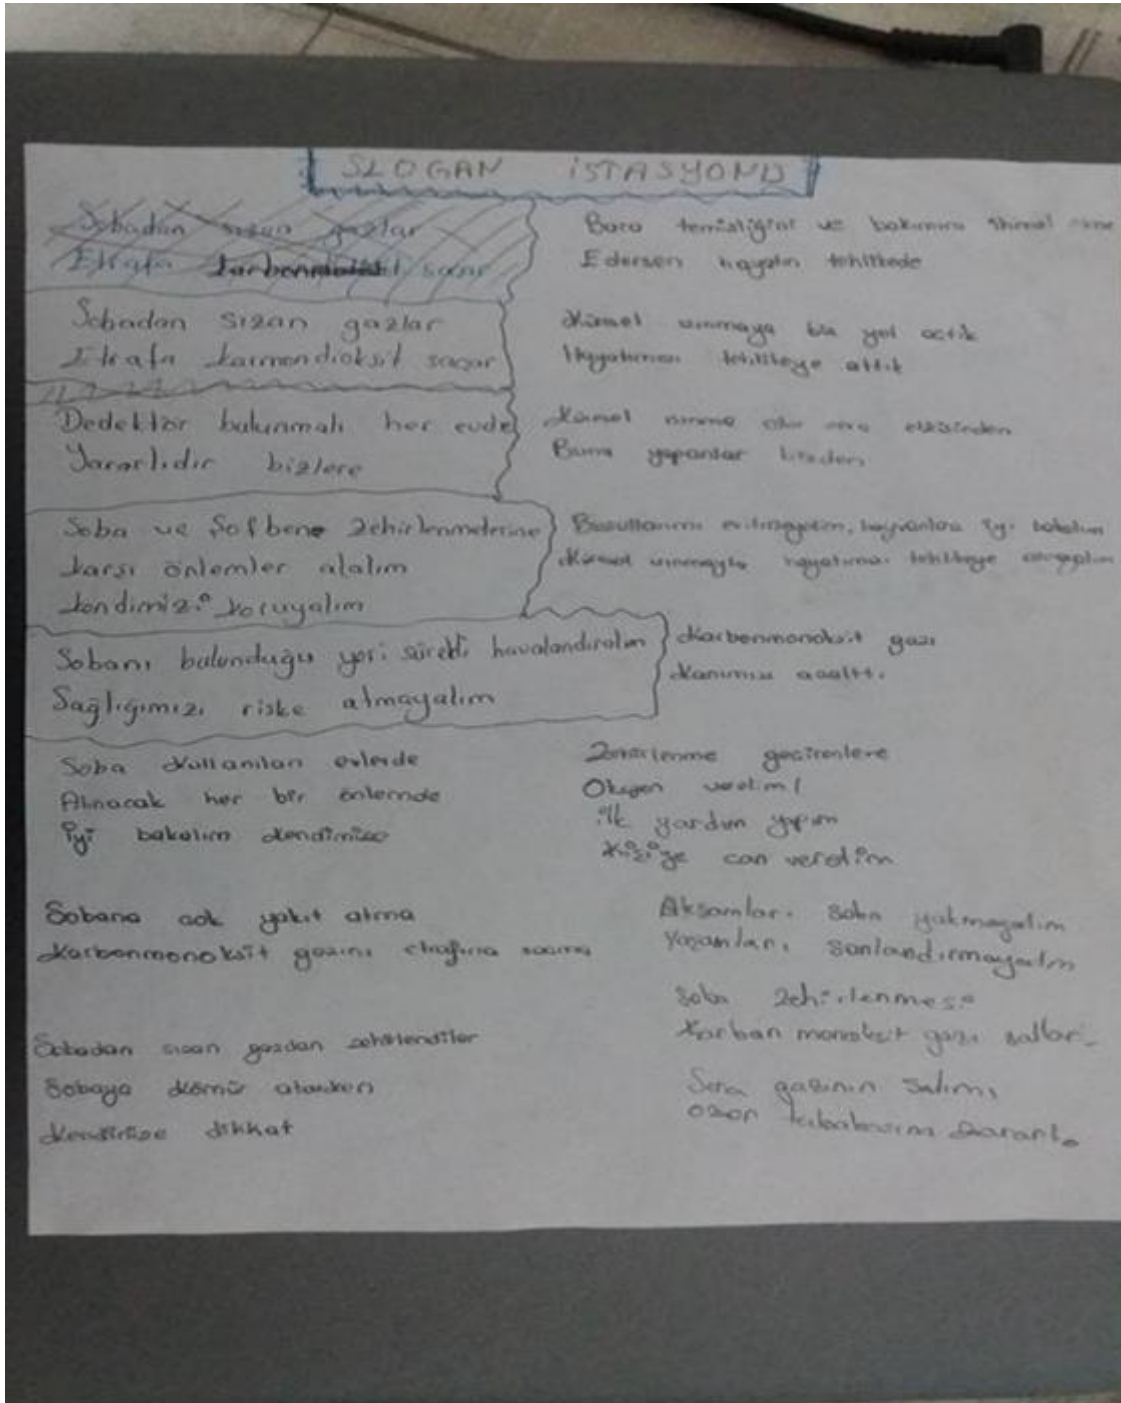 SLOGAN İSTASYONU
Sobadan sızan gazlar
Etrafa saçar
Sobadan sızan gazlar
Etrafa karmondioksit saçar
Dedektör bulunmalı her evde
Yararlıdır bizlere
Soba ve Şofben zehirlenmelerine
karşı önlemler alalım
kendimizi koruyalım
Sobanı bulunduğu yeri sürekli havalandıralım
Sağlığımızı riske atmayalım
Soba kullanılan evlerde
Alınacak her bir önlemde
iyi bakalım kendimize
Sobana çok yakıt atma
karbonmonoksit gazını etrafına saçma
Sobadan sızan gazdan zehirlendiler
Sobaya kömür atarken
kendinize dikkat
Baca temizliğini ve bakımını ihmal etme
Edersen hayatın tehlikede
küresel ısınmaya bir yol açtık
Hayatımızı tehlikeye attık
küresel ısınma sera etkisinden
Bunu yapanlar bizden
Buzullarımı eritmeyelim, hayvanlara iyi bakalım
küresel ısınmayla hayatımızı tehlikeye
karbonmonoksit gazı
kanımızı azalttı
Zehirlenme geçirenlere
Oksijen verelim!
ilk yardım yapım
kişiye can verelim
Akşamları soba yakmayalım
Yaşamları sonlandırmayalım
Soba zehirlenmesi
karban monoksit gazı
Sera gazının salımı
ozon